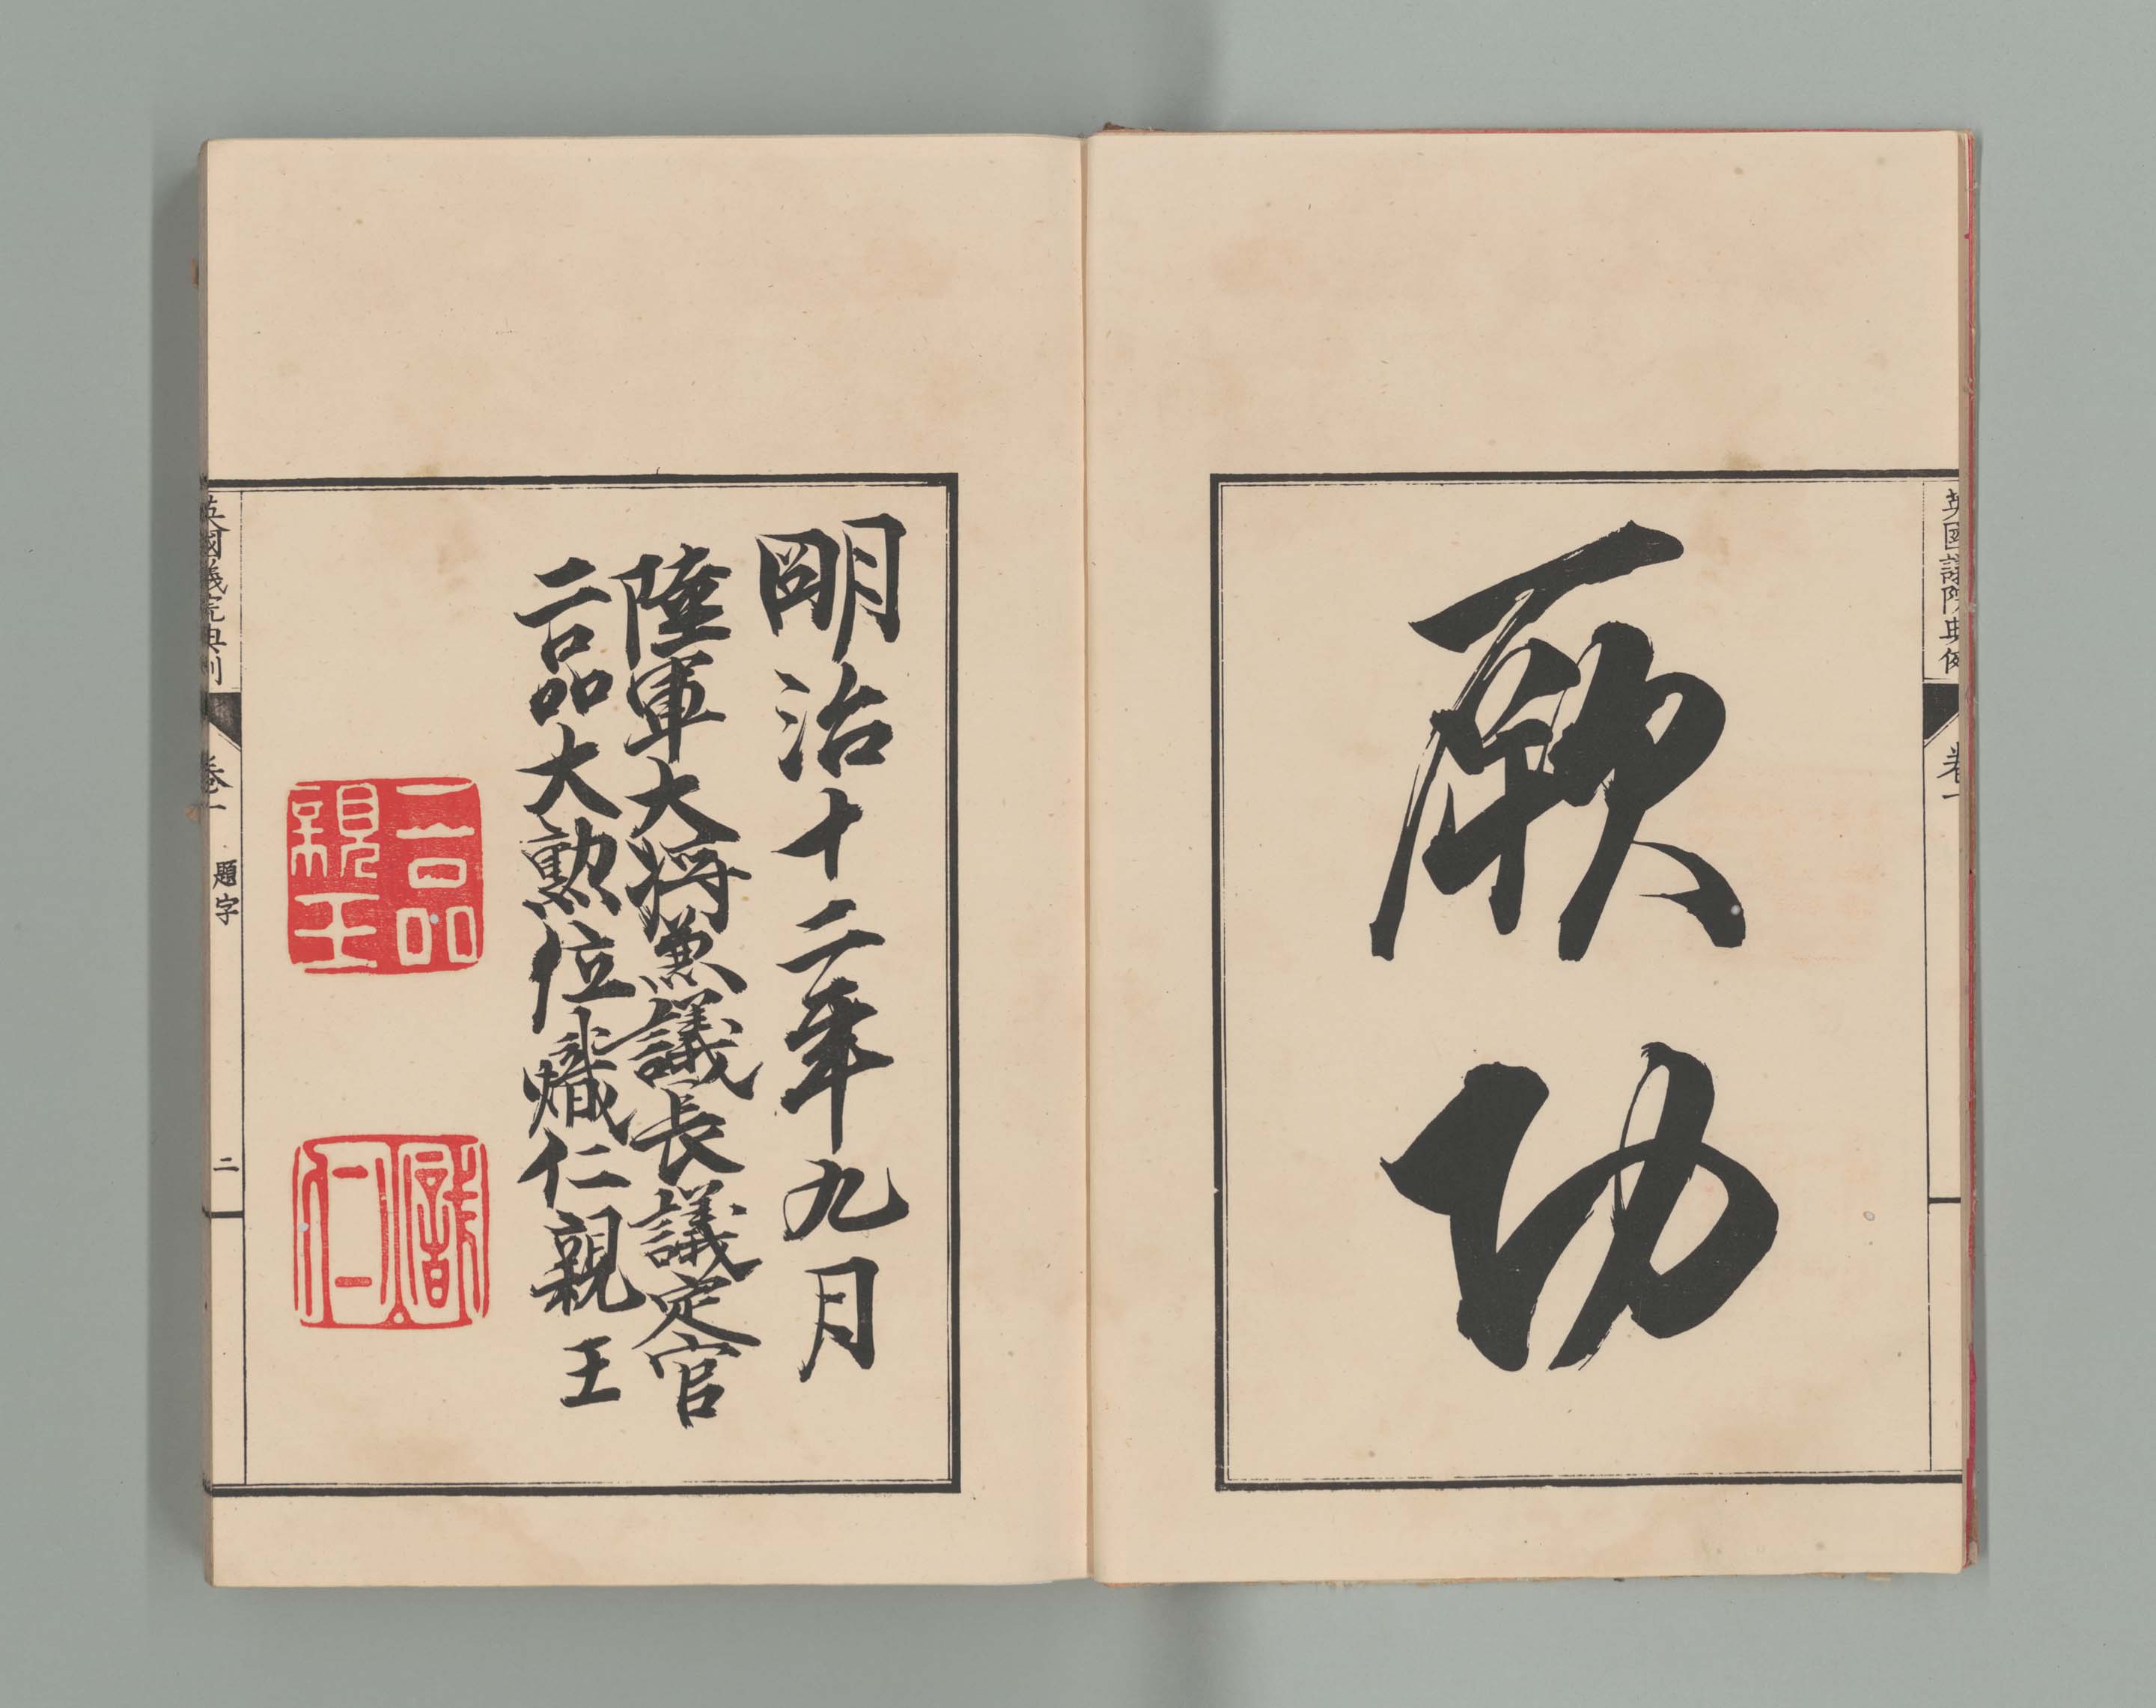 英國議院典例
卷一
厥
功
明治十二年九月
陸軍大将兼議長議定官
二品大勲位熾仁親王
二品
親王
熾
仁
英國議院典例
卷一
題字
二